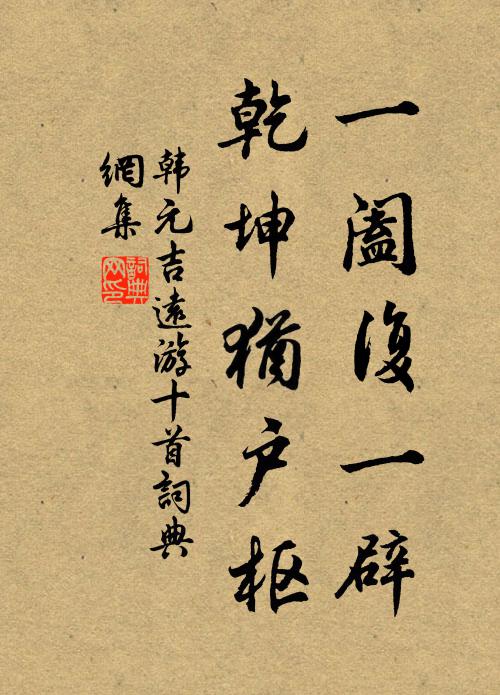 一阖復一辟
乾坤猶户枢
韩元吉遠游十首詞典
網集
詞典
网印